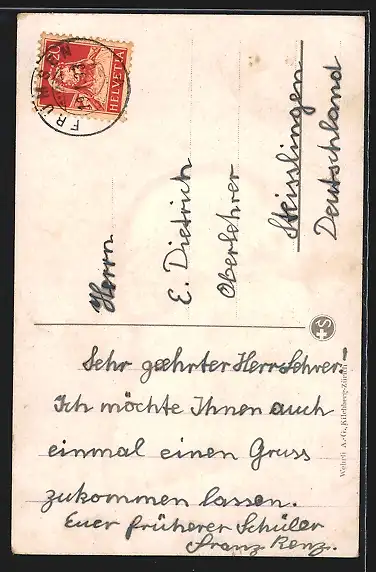 20
HELVETIA
FRÜMSEN
Herrn
E. Dietrich
Oberlehrer
Steisslingen
Deutschland
Sehr geehrter Herr Lehrer:-
Ich möchte Ihnen auch
einmal einen Gruss
zukommen lassen.
Euer früherer Schüler
Franz Renz.
Wehrli A.-G., Kilchberg-Zürich